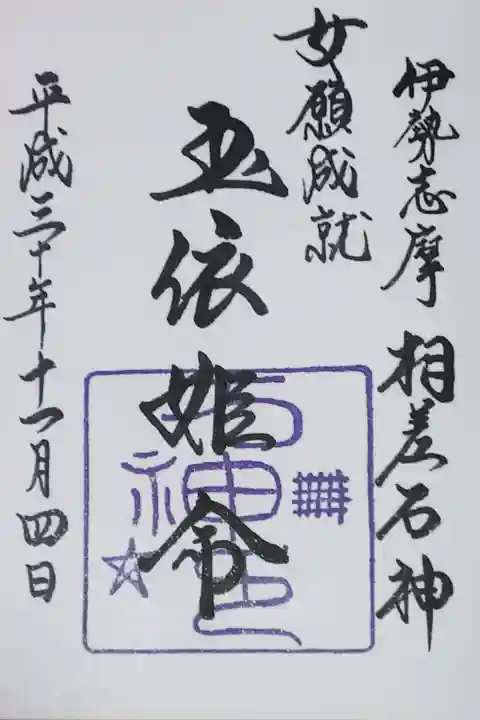 伊勢志摩 相差石神
女願成就
玉依姫命
石神
平成三十年十一月四日